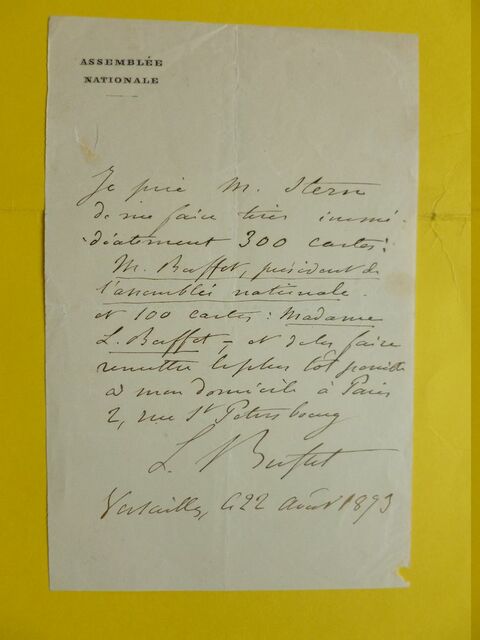 ASSEMBLÉE
NATIONALE
Je prie M. Stern
de me faire tirer immé
diatement 300 cartes:
M. Buffet, président de
l'assemblée nationale.
et 100 cartes: Madame
L. Buffet, et de les faire
remettre le plus tôt possible
à mon domicile à Paris
2, rue St Petersbourg
L. Buffet
Versailles, le 22 août 1873